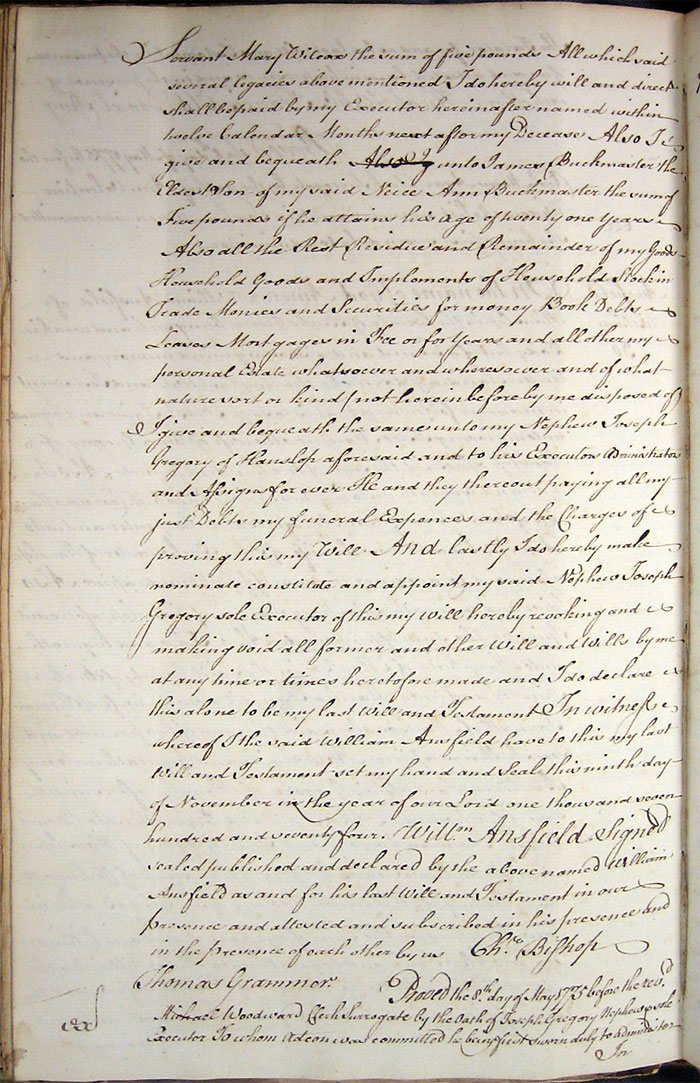 Servant Mary Wilcox the sum of five pounds All which said
several legacies above mentioned I do hereby will and direct
shall be paid by my Executor hereinafter named within
twelve Calendar Months next after my Decease Also I
give and bequeath Also I unto James Buckmaster the
Eldest Son of my said Neice Ann Buckmaster the sum of
Five pounds if he attains his age of twenty one Years
Also all the Rest Residue and Remainder of my Goods
Household Goods and Implements of Household Stock in
Trade Monies and Securities for money Book Debts
Leases Mortgages in Fee or for Years and all other my
personal Estate whatsoever and wheresoever and of what
nature sort or kind (not hereinbefore by me disposed of)
I give and bequeath the same unto my Nephew Joseph
Gregory of Hanslop aforesaid and to his Executors Administrators
and Assigns for ever He and they thereout paying all my
just Debts my funeral Expences and the Charges of
proving this my Will And lastly I do hereby make
nominate constitute and appoint my said Nephew Joseph
Gregory sole Executor of this my will hereby revoking and
making void all former and other Will and Wills by me
at any time or times heretofore made and I do declare
this alone to be my last Will and Testament In witness
whereof I the said William Ansfield have to this my last
Will and Testament set my hand and Seal this ninth day
of November in the year of our Lord one thousand seven
hundred and seventy four. Willm Ansfield Signed
sealed published and declared by the above named William
Ansfield as and for his last Will and Testament in our
presence and attested and subscribed in his presence and
in the presence of each other by us Chr. Bishop
Thomas Grammer.
Proved the 8th day of May 1775 before the revd
Michael Woodward Clerk Surrogate by the Oath of Joseph Gregory Nephew & sole
Executor To whom Admon was committed he being first sworn duly to administer
Ex
In